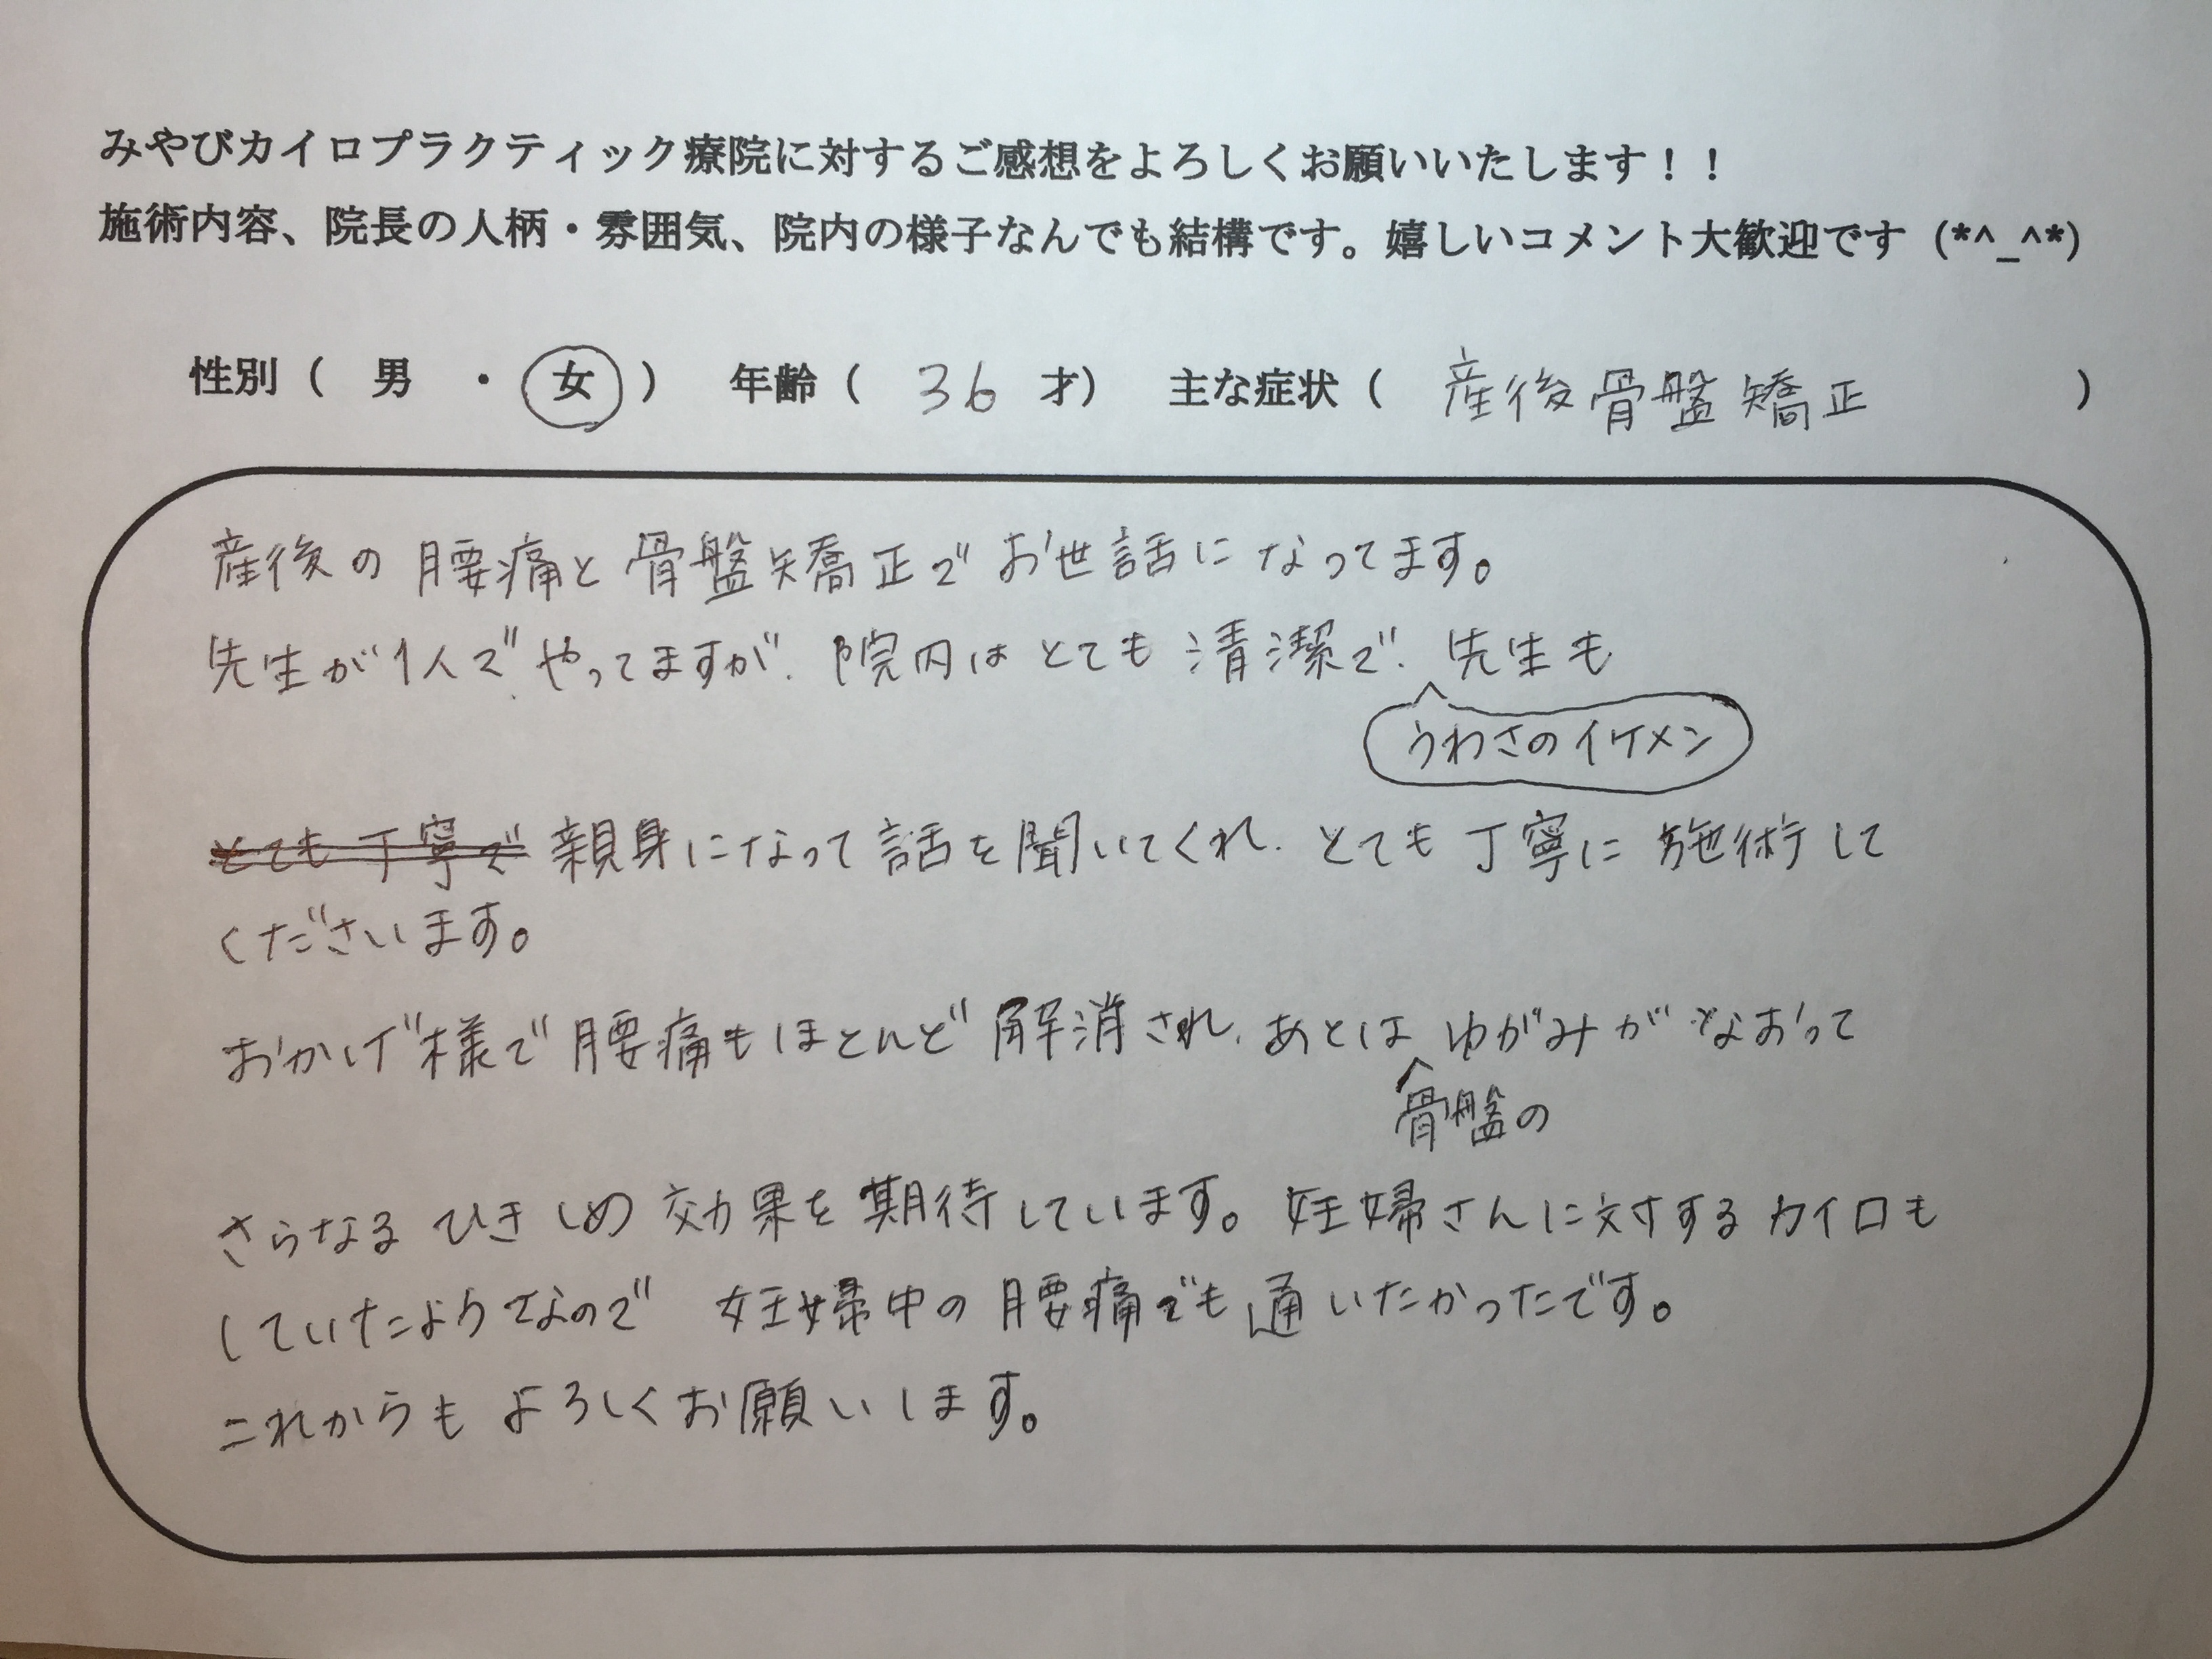 みやびカイロプラクティック療院に対するご感想をよろしくお願いいたします！！
施術内容、院長の人柄・雰囲気、院内の様子なんでも結構です。嬉しいコメント大歓迎です (*^_^*)
性別（ 男 ・ 女 ） 年齢（ 36 才） 主な症状（ 産後骨盤矯正 ）
産後の腰痛と骨盤矯正でお世話になってます。
先生が1人でやってますが、院内はとても清潔で、先生も
うわさのイケメン
とても丁寧で 親身になって話を聞いてくれ、とても丁寧に施術して
くださいます。
おかげ様で腰痛もほとんど解消され、あとはゆがみがなおって
骨盤の
さらなるひきしめ効果を期待しています。妊婦さんに対するカイロも
していたようなので 妊婦中の腰痛でも通いたかったです。
これからもよろしくお願いします。